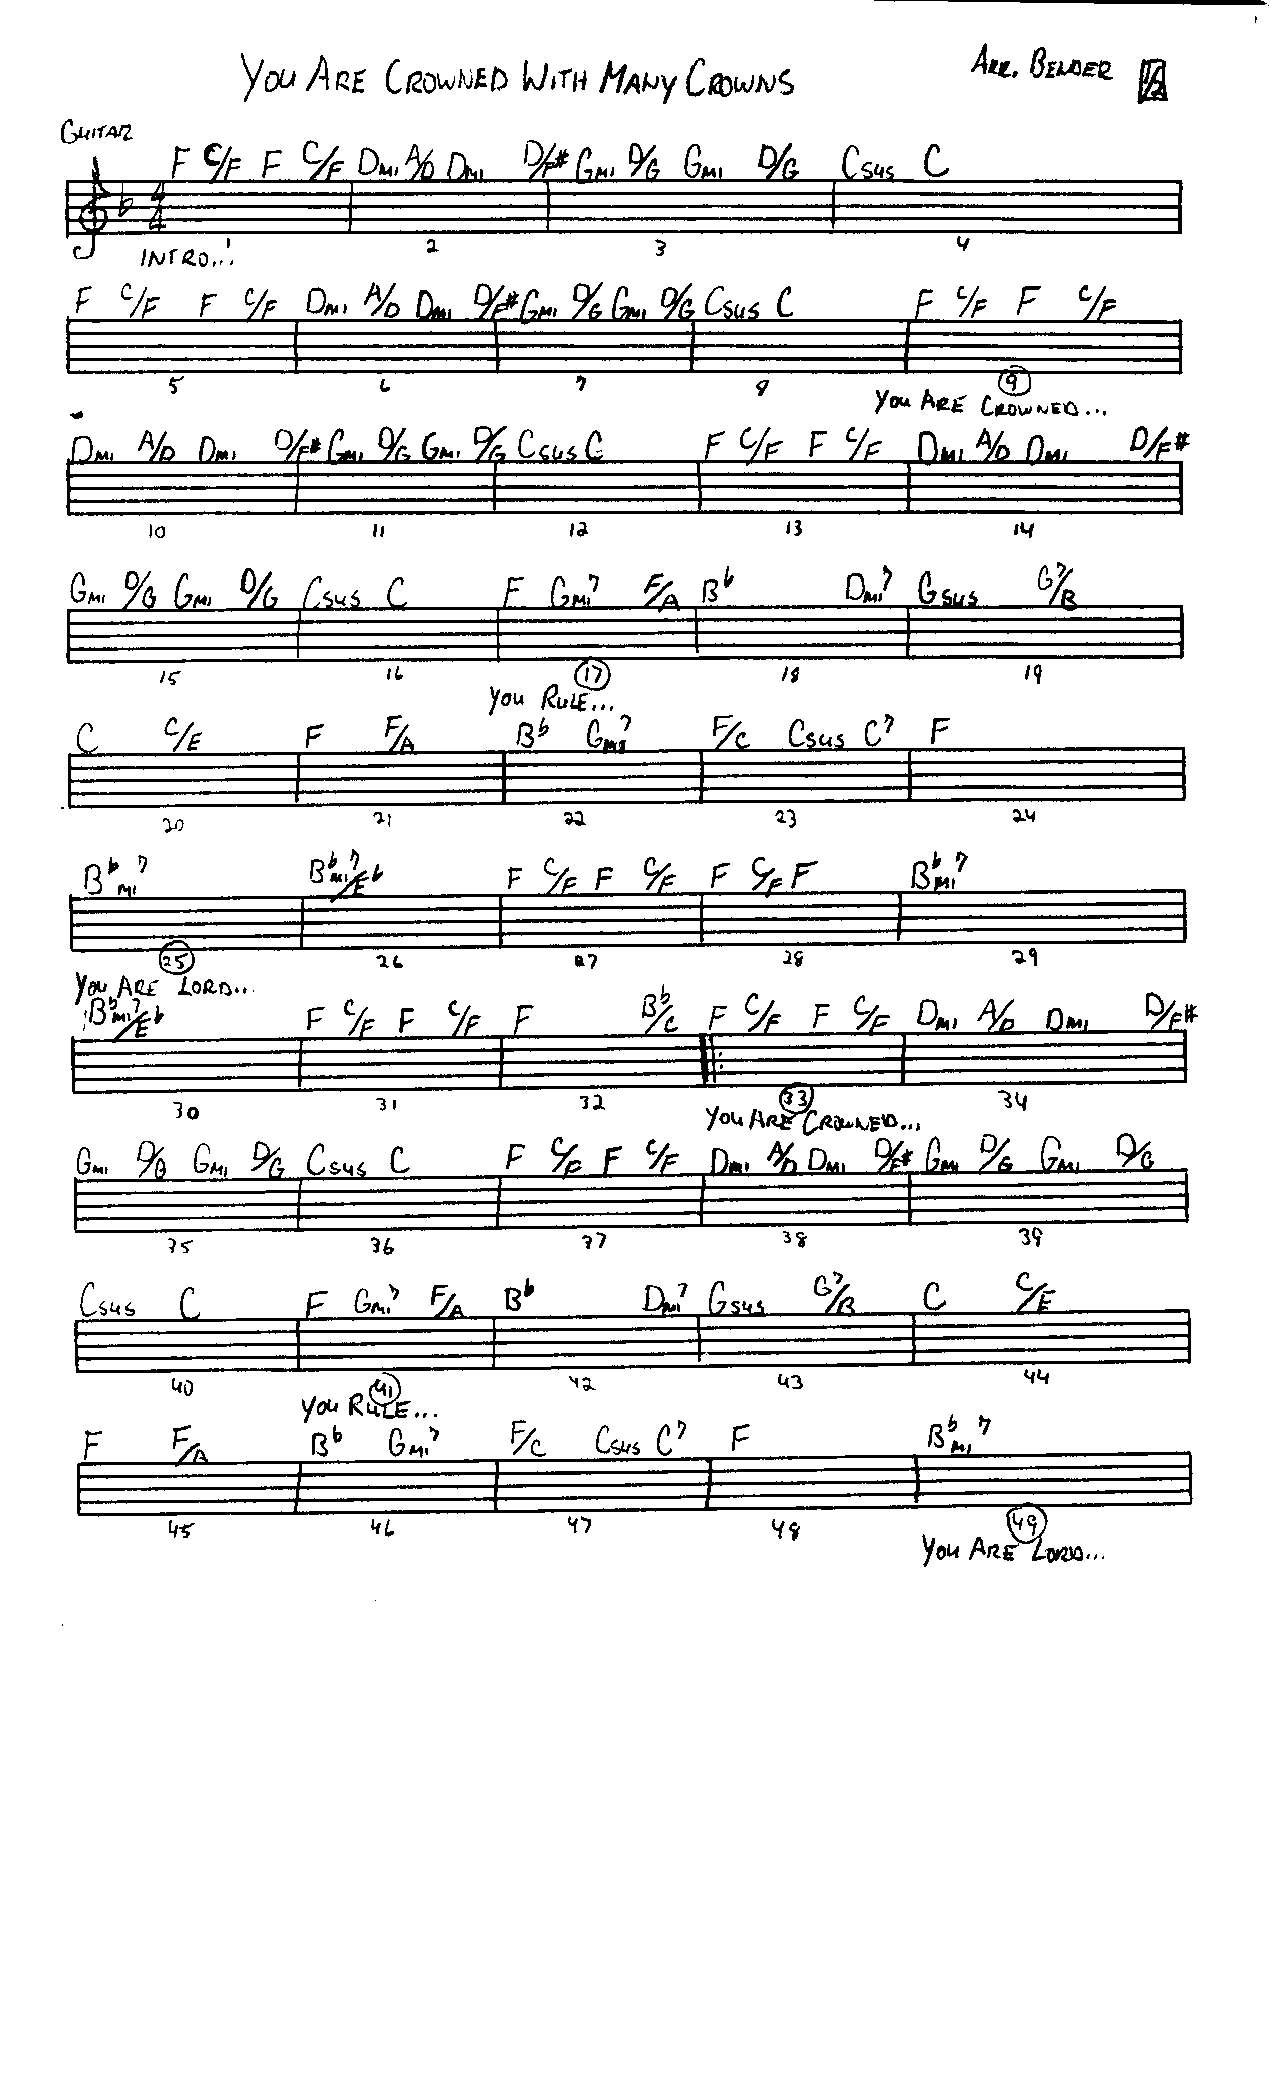 YOU ARE CROWNED WITH MANY CROWNS
ARR. BENDER 1/2
GUITAR
F C/F F C/F DMI A/D DMI D/F# GMI D/G GMI D/G CSUS C
INTRO... 1 2 3 4
F C/F F C/F DMI A/D DMI D/F# GMI D/G GMI D/G CSUS C F C/F F C/F
5 6 7 8 9
YOU ARE CROWNED...
DMI A/D DMI D/F# GMI D/G GMI D/G CSUS C F C/F F C/F DMI A/D DMI D/F#
10 11 12 13 14
GMI D/G GMI D/G CSUS C F GMI7 F/A Bb DMI7 GSUS G7/B
15 16 17 18 19
YOU RULE...
C C/E F F/A Bb GMI7 F/C CSUS C7 F
20 21 22 23 24
BbMI7 BbMI7/Eb F C/F F C/F F C/F F BbMI7
25 26 27 28 29
YOU ARE LORD...
BbMI7/Eb F C/F F C/F F Bb/C F C/F F C/F DMI A/D DMI D/F#
30 31 32 33 34
YOU ARE CROWNED...
GMI D/G GMI D/G CSUS C F C/F F C/F DMI A/D DMI D/F# GMI D/G GMI D/G
35 36 37 38 39
CSUS C F GMI7 F/A Bb DMI7 GSUS G7/B C C/E
40 41 42 43 44
YOU RULE...
F F/A Bb GMI7 F/C CSUS C7 F BbMI7
45 46 47 48 49
YOU ARE LORD...